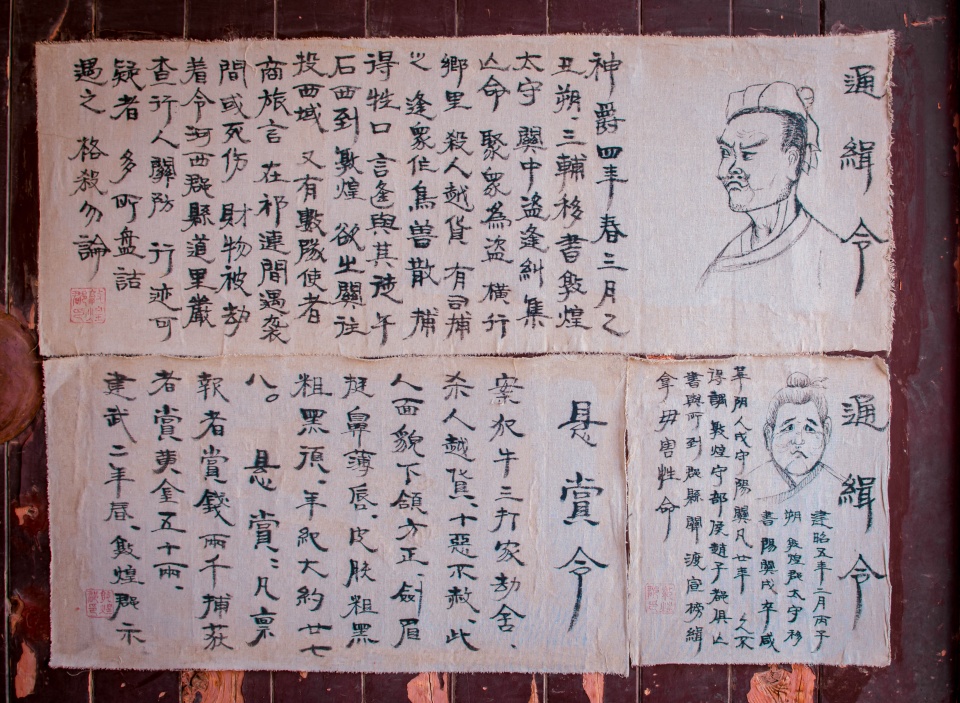 通緝令
神爵四年春三月乙
丑朔、三輔移書敦煌
太守 關中盜逢糾集
亾命 聚衆為盜 橫行
鄉里 殺人越貨 有司捕
之 逢衆作鳥兽散 捕
得牲口 言逢與其徒午
石西到敦煌 欲出關 往
投西域 又有數隊使者
商旅言 在祁連間遇袭
間或死伤 財物被劫
者 令河西郡縣道里嚴
查行人關防 行迹可
疑者 多可盘詰
遇之 格殺勿論
通緝令
建昭五年二月丙子
朔 敦煌郡太守移
書 陽關戍卒咸
革陰人戍守陽關凡廿年 久不
得調 敦煌守部侯趙子都俱亾
書與所到郡縣關渡宣榜緝
拿 毋害性命
悬賞令
案犯牛三打家劫舍、
杀人越貨、十惡不赦、此
人面貌下頜方正、劍眉
挺鼻薄唇、皮肤粗黑
粗黑須、年紀大約廿七
八。 悬賞：凡禀
報者賞錢兩千 捕获
者賞黄金五十兩、
建武二年春、敦煌郡示